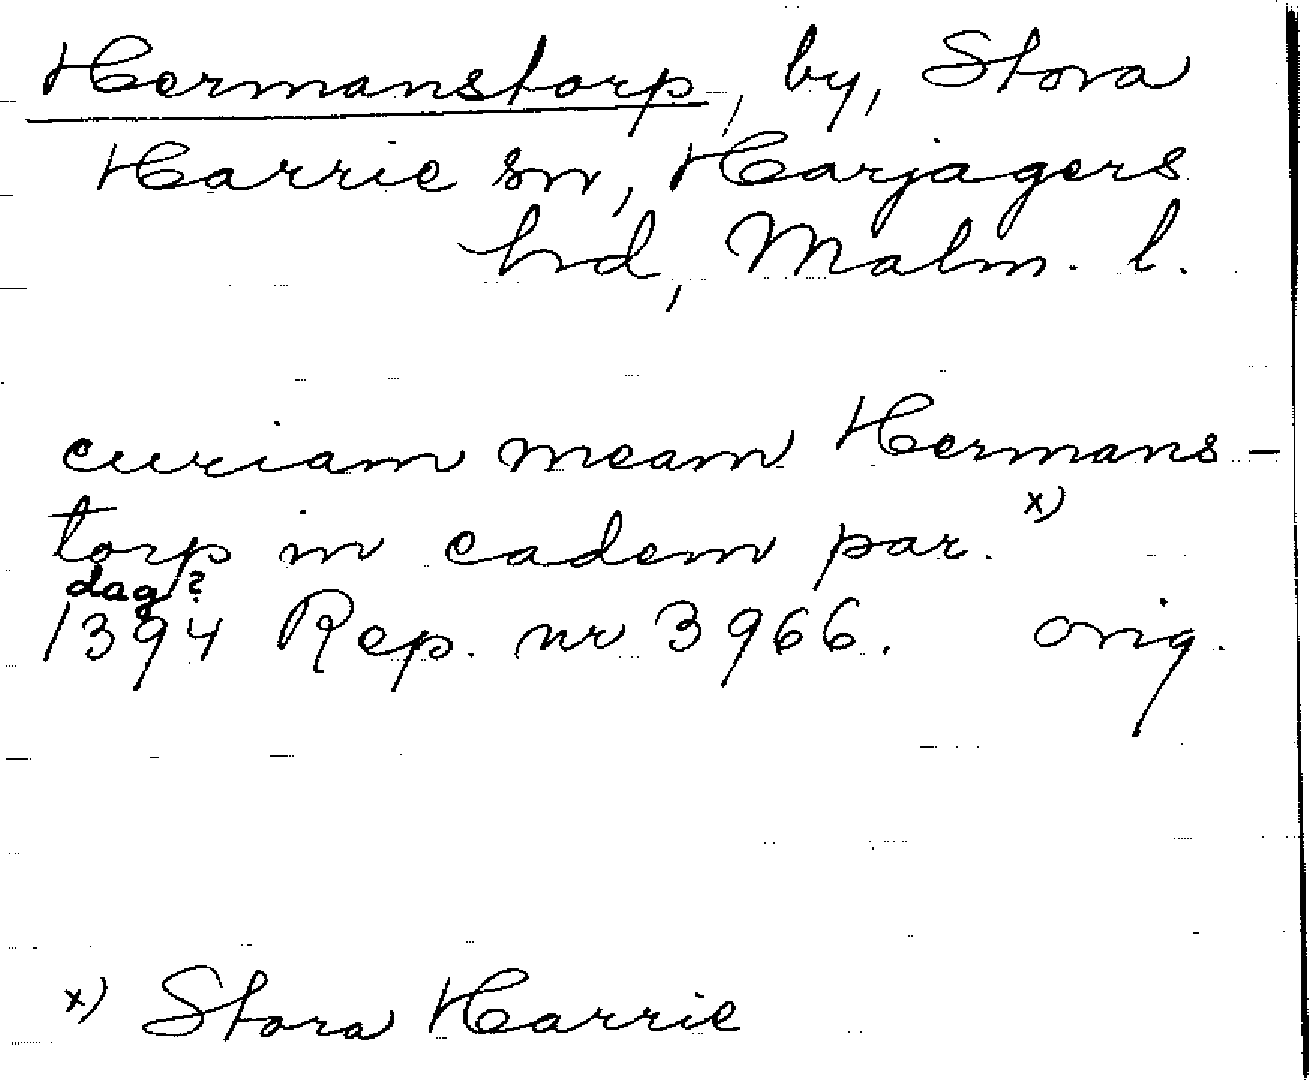 Hermanstorp, by, Stora
Harrie sn, Harjagers
hrd, Malm. l.
curiam meam Hermans-
torp in eadem par. x)
dag?
1394 Rep. nr 3966. orig.
x) Stora Harrie